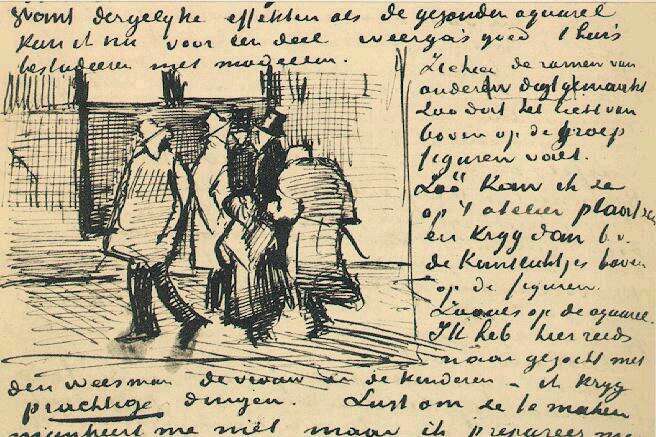 Want dergelyke effekten als de gezonden aquarel
kan ik nu voor een deel weergas goed thuis
bestudeeren met modellen.
Ziehier de ramen van
onderen digt gemaakt
Zoo dat het licht van
boven op de groep
figuren valt.
Zóó kan ik ze
op 't atelier plaatsen
en kryg dan b.v.
de kantlichtjes boven
op de figuren.
Zooals op de aquarel.
Ik heb hier reeds
naar gezocht met
den weesman de vrouw en de kinderen – ik kryg
prachtige dingen. Lust om ze te maken
mankeert me niet maar ik prepareer me